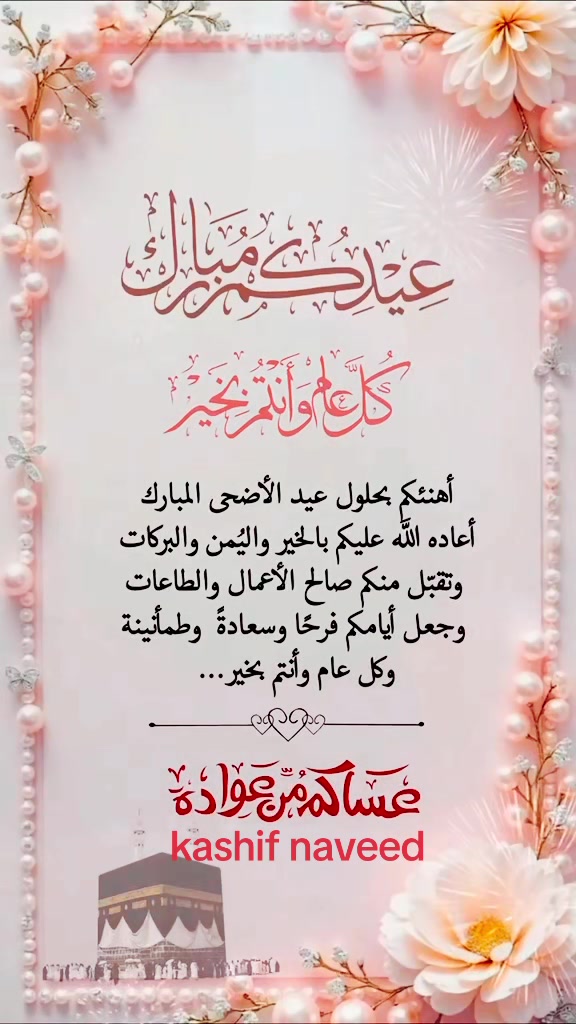 عِيْدِكُمْ مُبَارَك
كُلَّ عَام وَأَنْتُمْ بِخَيْرْ
أهنئكم بحلول عيد الأضحى المبارك
أعاده اللّٰه عليكم بالخير واليُمن والبركات
وتقبّل منكم صالح الأعمال والطاعات
وجعل أيامكم فرحًا وسعادةً وطمأنينة
وكل عام وأنتم بخير...
عساكم من عواده
kashif naveed